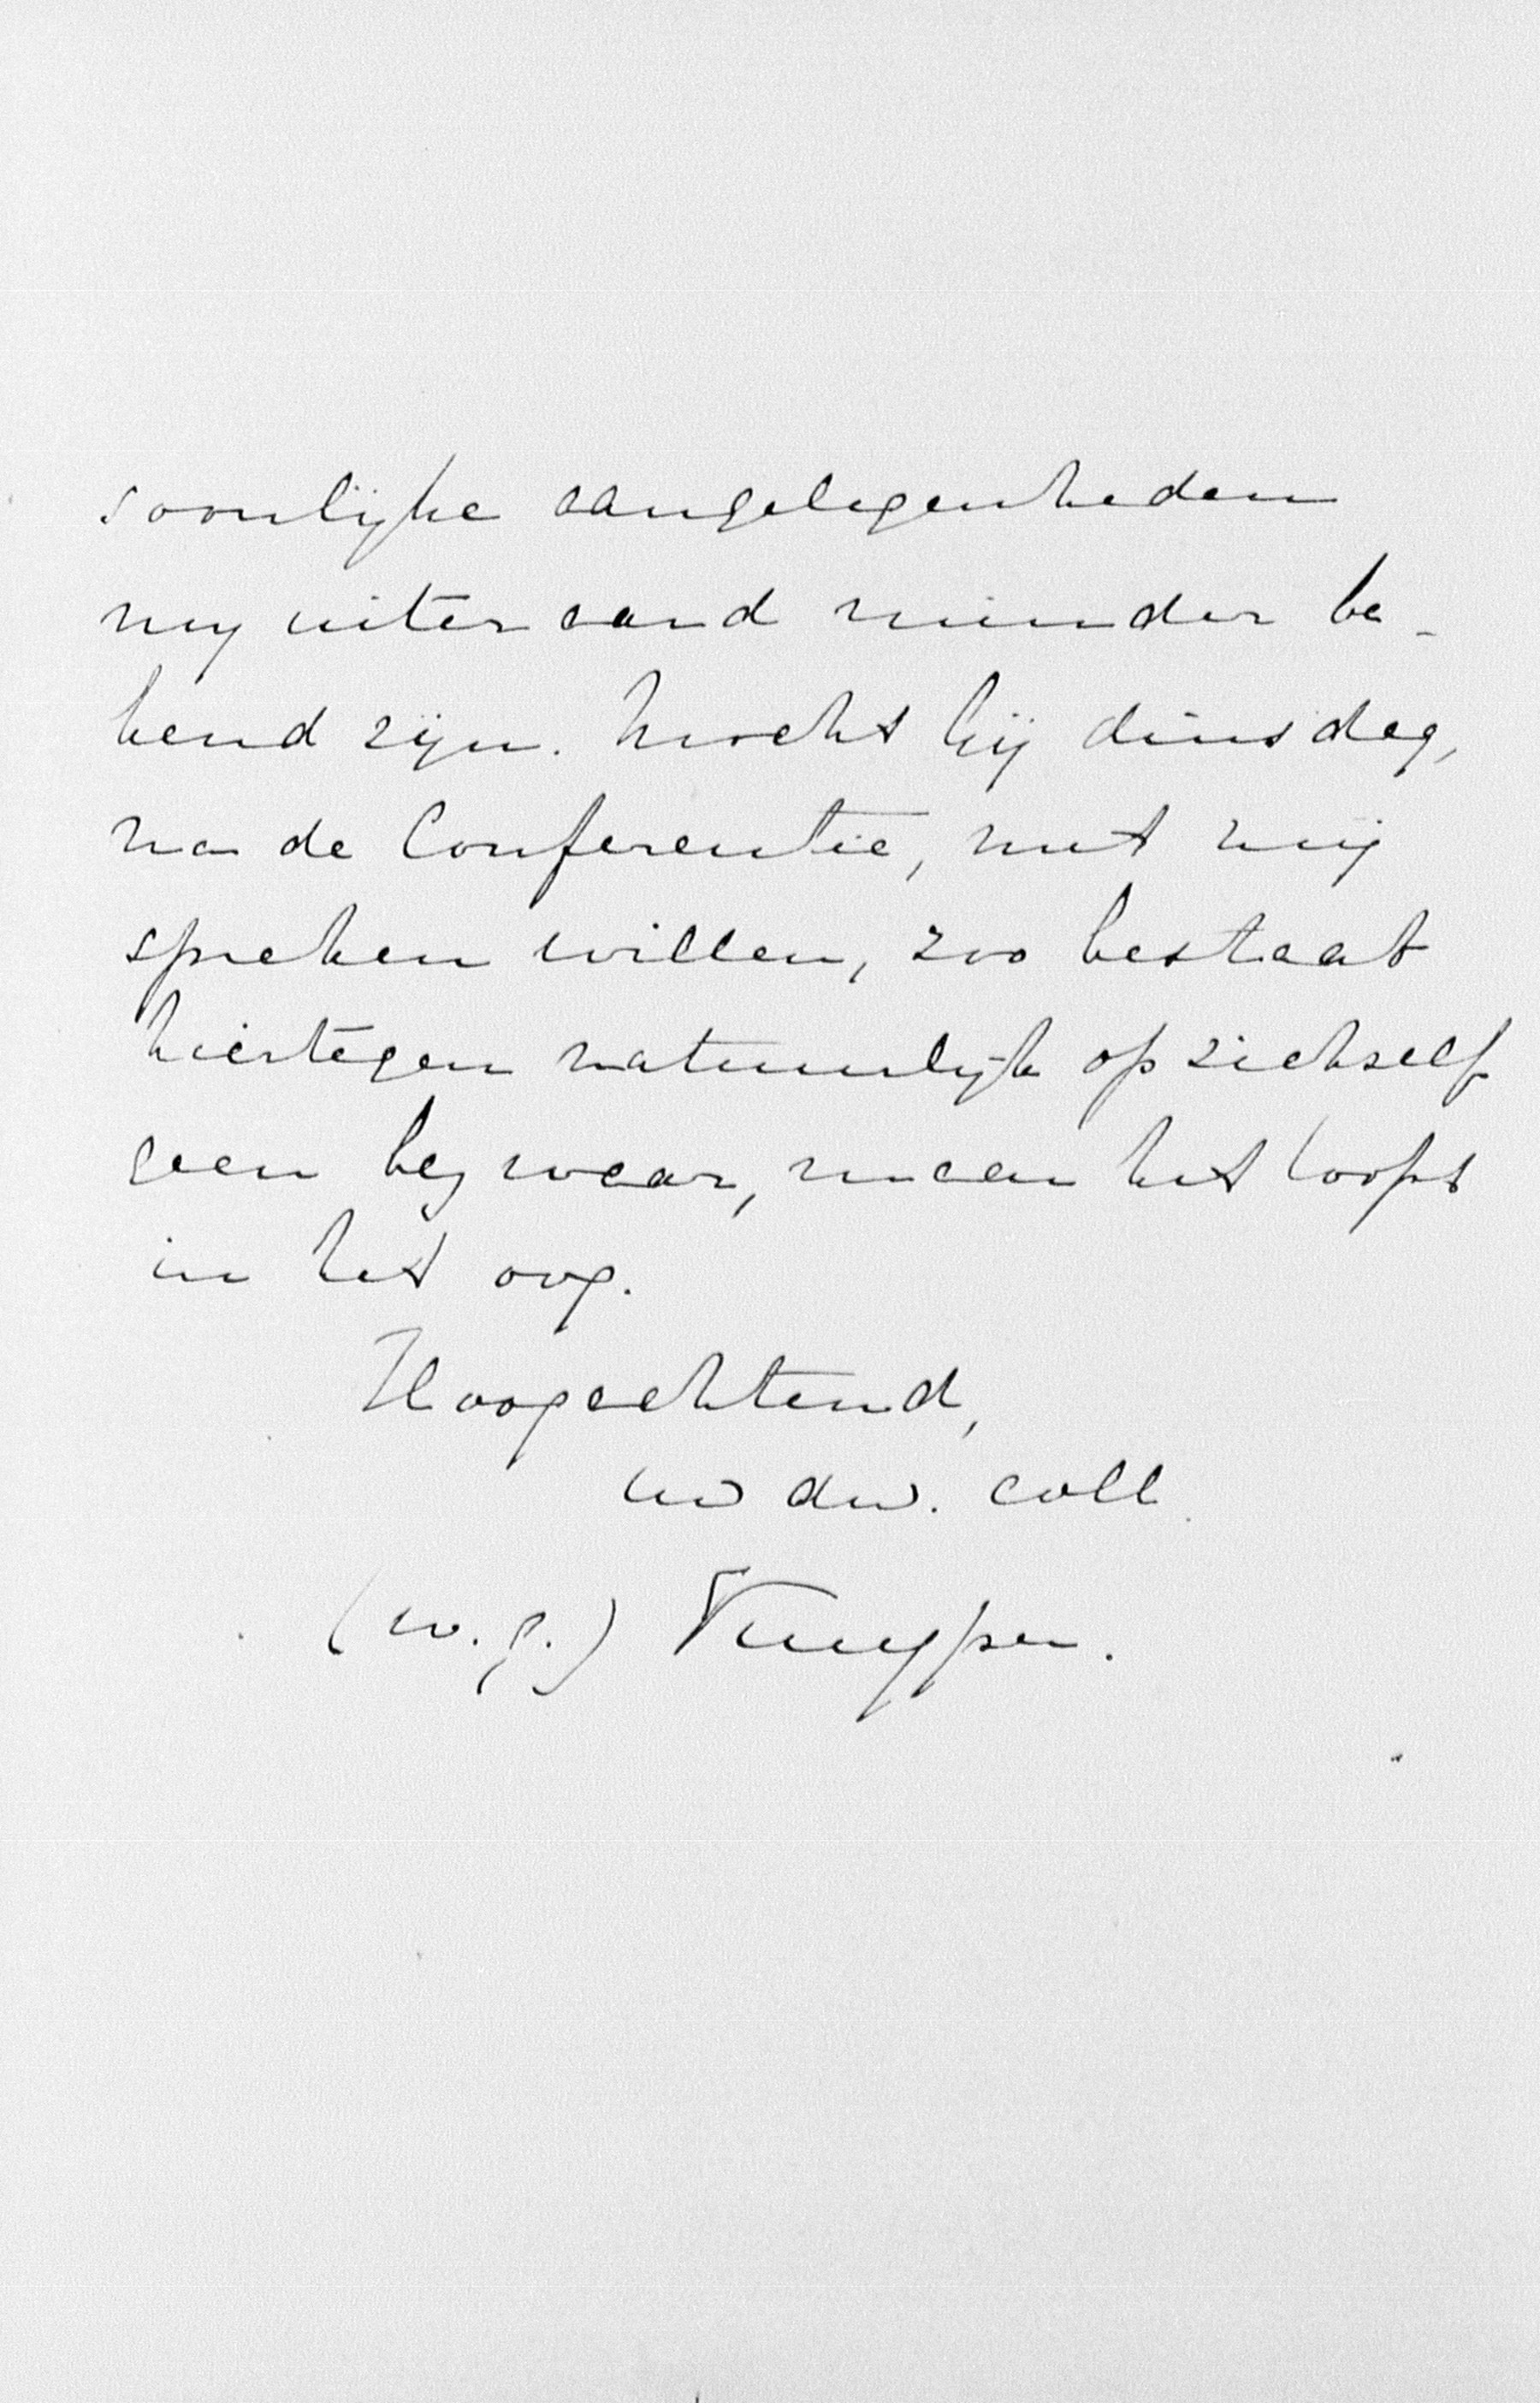 soonlijke aangelegenheden
my uiteraard minder be-
kend zijn. Mocht hij dinsdag,
na de Conferentie, met mij
spreken willen, zoo bestaat
hiertegen natuurlijk op zichself
geen bezwaar, maar het loopt
in het oog.
Hoogachtend,
uw dw. coll.
(w.g.) Kuyper.